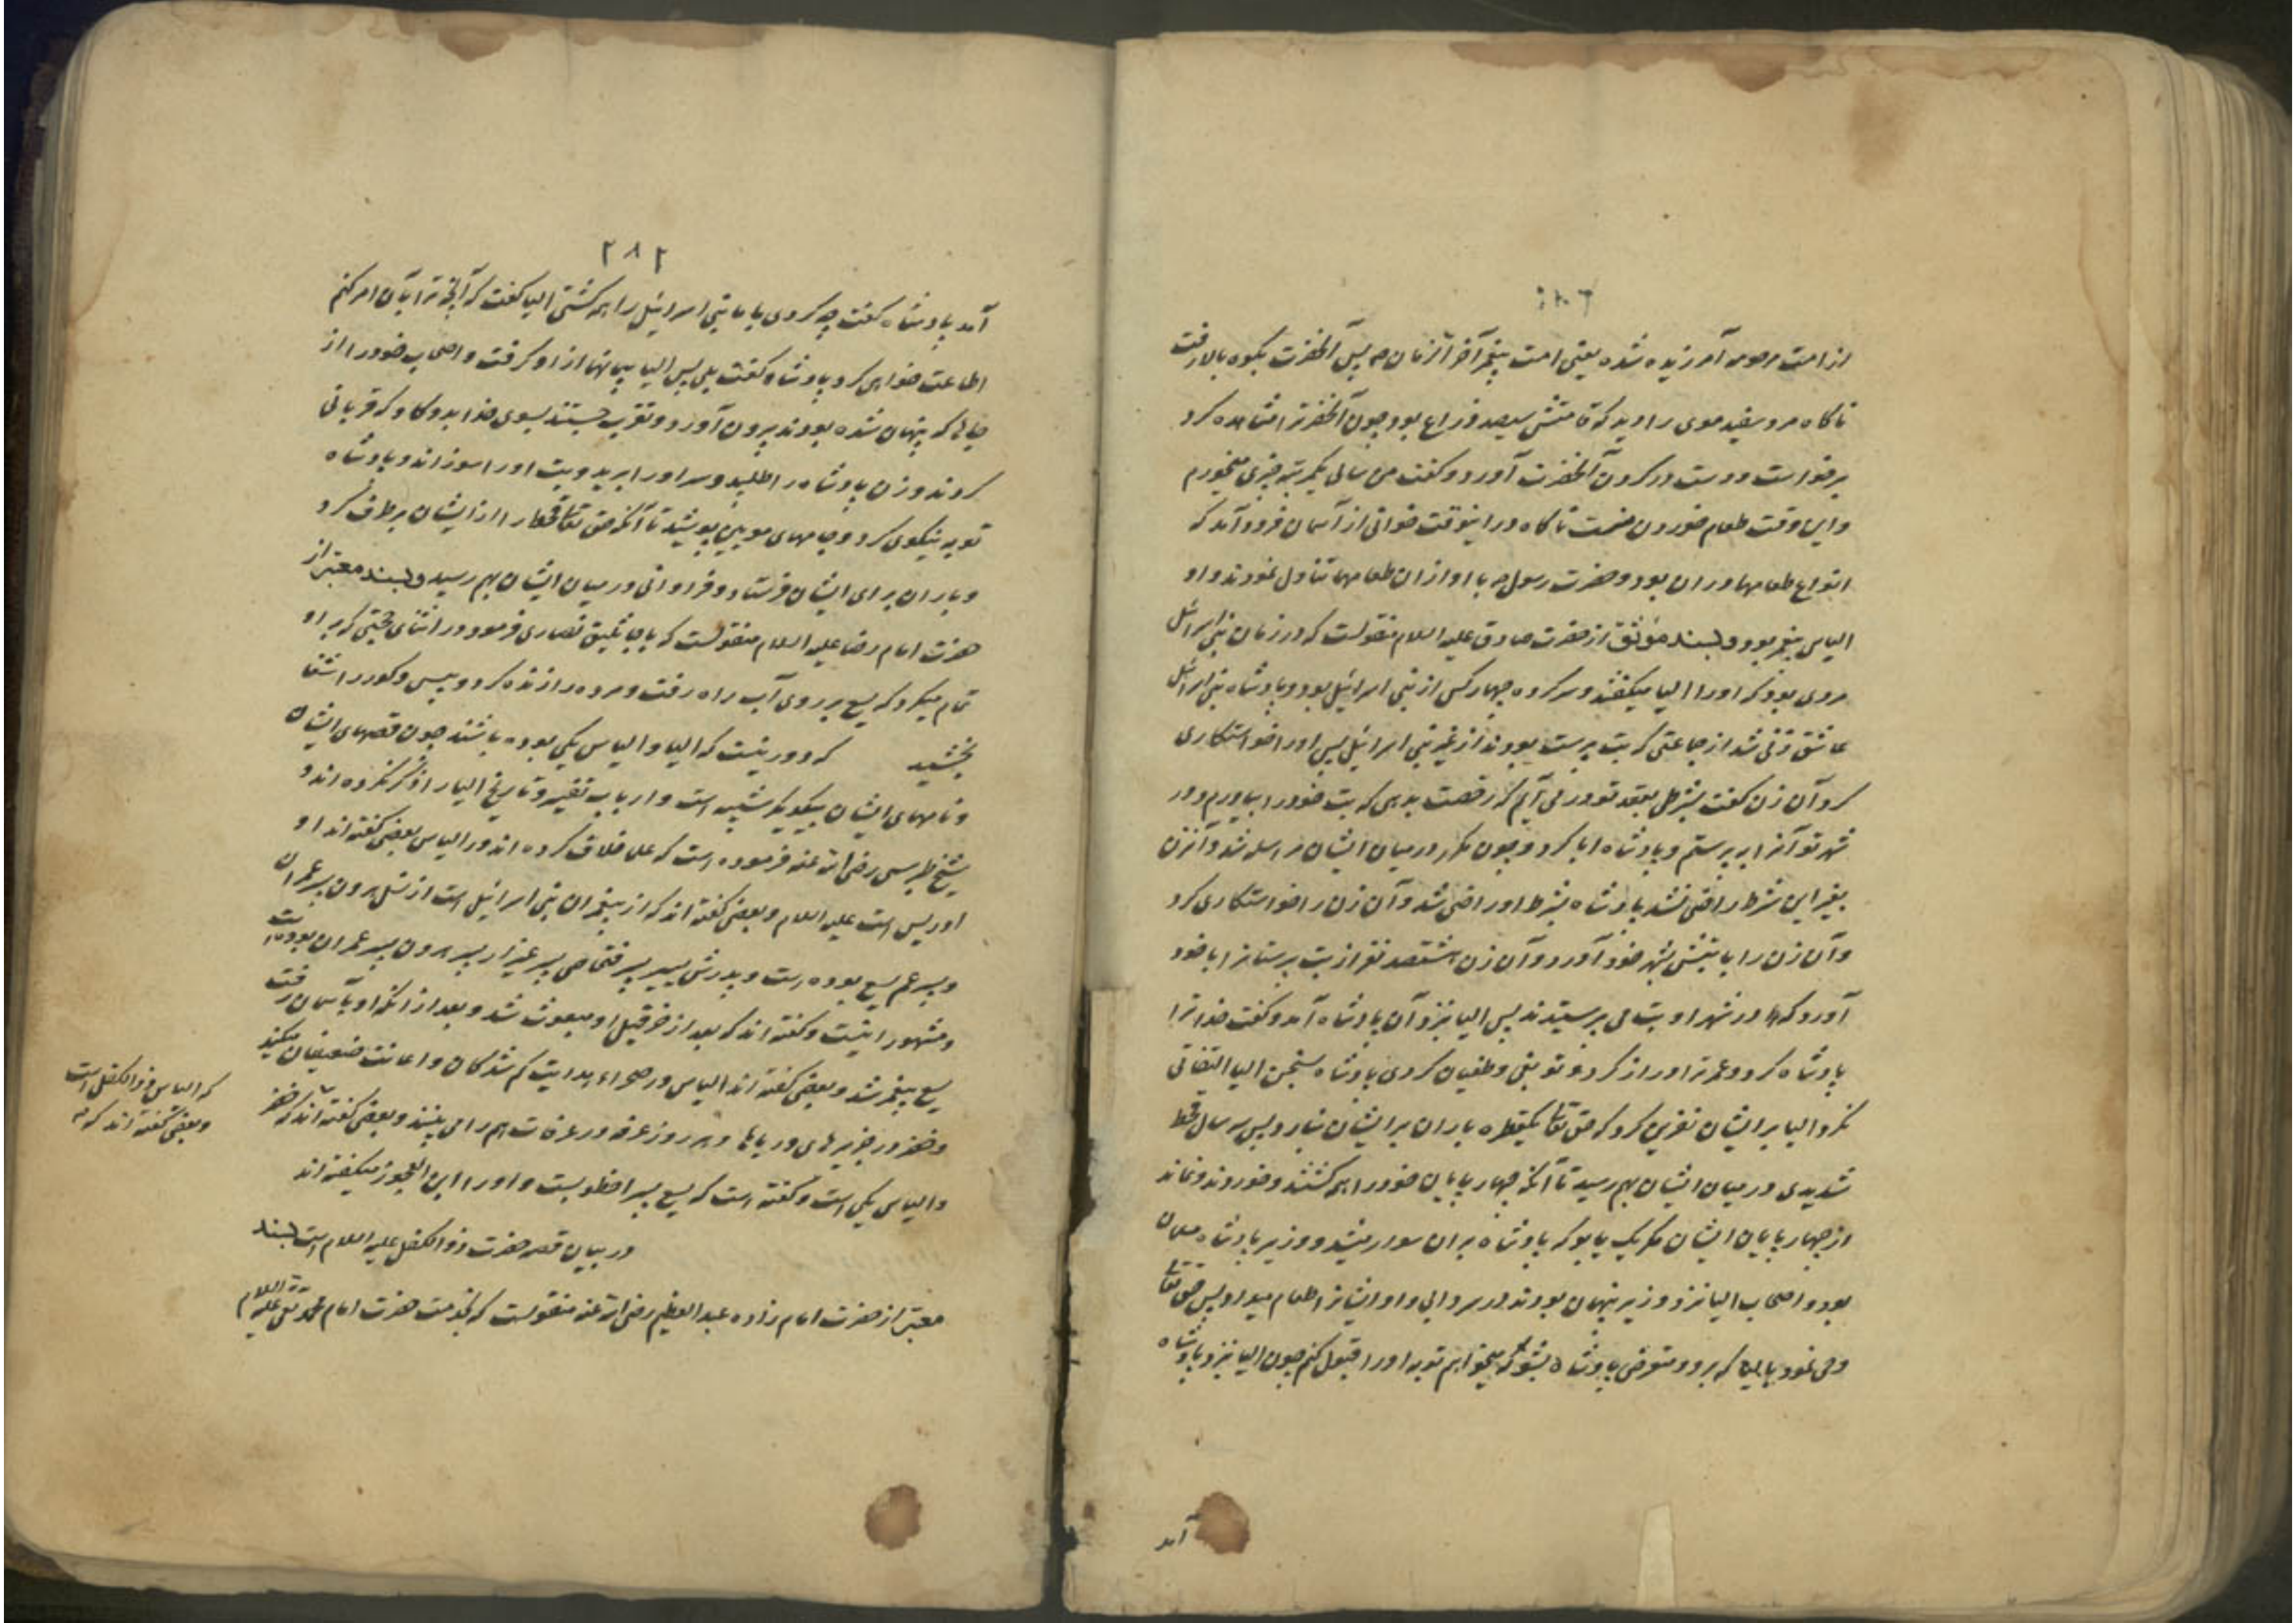 از امت مرحومه آمرزیده شده یعنی امت پیغمبر آخر الزمان ص پس آنحضرت بکوه بالا رفت
ناکاه مرد سفید موی را دید که قامتش سیصد ذراع بود چون آنحضرت را مشاهده کرد
برخواست و دست در کردن آنحضرت آورد و کفت من سالی یکمرتبه چیزی میخورم
و این وقت طعام خوردن منست ناکاه در اینوقت خوانی از آسمان فرود آمد که
انواع طعامها در ان بود و حضرت رسول ص با او از ان طعامها تناول نمودند و او
الیاس پیغمبر بود و بسند موثق از حضرت صادق علیه السلام منقولست که در زمان بنی اسرائیل
مردی بود که او را الیا میکفتند و سرکرده چهارکس از بنی اسرائیل بود و پادشاه بنی اسرائیل
عاشق زنی شد از جماعتی که بت پرست بودند از غیر بنی اسرائیل پس او را خواستکاری
کرد آن زن کفت بشرطی بعقد تو در می آیم که رخصت بدهی که بت خود را بیاورم و در
شهر تو آنرا بپرستم و پادشاه ابا کرد و چون مکرر در میان ایشان مراسله شد و آنزن
بغیر این شرط راضی نشد پادشاه بشرط او راضی شد و آن زن را خواستکاری کرد
و آن زن را با بتش بشهر خود آورد و آن زن هشتصد نفر از بت پرستانرا با خود
آورد که در شهر او بت می پرستیدند پس الیا بنزد آن پادشاه آمد و کفت خدا ترا
پادشاه کرد و عمر ترا دراز کرد و تو بغی و طغیان کردی پادشاه بسخن الیا التفاتی
نکرد الیا بر ایشان نفرین کرد که حق تعا یکقطره باران بر ایشان نبارد پس سه سال قحط
شدیدی در میان ایشان بهم رسید تا آنکه چهارپایان خود را همه کشتند و خوردند و نماند
از چهارپایان ایشان مکر یک یابو که پادشاه بر ان سوار میشد و وزیر پادشاه مسلمان
بود و اصحاب الیا نزد وزیر پنهان بودند در سردابی و او ایشانرا طعام میداد پس حق تعا
وحی نمود بالیا که برو و متعرض پادشاه بشو که میخواهم توبه او را قبول کنم چون الیا بنزد پادشاه
آمد
۲۸۲
آمد پادشاه کفت چه کردی با ما بنی اسرائیل را همه کشتی الیا کفت که آنچه ترا بآن امر کنم
اطاعت خواهی کرد پادشاه کفت بلی پس الیا پیمانها از او کرفت و اصحاب خود را از
جائیکه پنهان شده بودند بیرون آورد و تقرب جستند بسوی خدا بدو کاو که قربانی
کردند و زن پادشاه را طلبید و سر او را برید و بت او را سوزاند و پادشاه
توبه نیکوی کرد و جامهای مویین پوشید تا آنکه حق تعا قحط را از ایشان برطرف کرد
و باران برای ایشان فرستاد و فراوانی در میان ایشان بهم رسید و بسند معتبر از
حضرت امام رضا علیه السلام منقولست که با جاثلیق نصاری فرمود در اثنای حجتی که بر او
تمام میکرد که یسع بر روی آب راه رفت و مرده را زنده کرد و پیس و کور را شفا
بخشید که دور نیست که الیا و الیاس یکی بوده باشند چون قصهای ایشان
و نامهای ایشان بیکدیکر شبیه است و ارباب تفسیر و تاریخ الیا را ذکر نکرده اند و
شیخ طبرسی رضی الله عنه فرموده است که علما خلاف کرده اند در الیاس بعضی کفته اند او
ادریس است علیه السلام و بعضی کفته اند که از پیغمبران بنی اسرائیل است از نسل هرون پسر عمران
و پسر عم یسع بوده است و پدرش یسیر پسر فنحاص پسر عیزار پسر هرون پسر عمران بوده است
و مشهور اینست و کفته اند که بعد از حزقیل او مبعوث شد و بعد از انکه او بآسمان رفت
یسع پیغمبر شد و بعضی کفته اند الیاس در صحراها هدایت کم شدکان و اعانت ضعیفان میکند
و خضر در جزیرهای دریاها و هر روز عرفه در عرفات هم را می بینند و بعضی کفته اند که خضر
و الیاس یکی است و کفته است که یسع پسر اخطوبست و او را ابن العجوز میکفته اند
در بیان قصه حضرت ذو الکفل علیه السلام است بسند
معتبر از حضرت امام زاده عبد العظیم رضی الله عنه منقولست که بخدمت حضرت امام محمد تقی علیه السلام
که الیاس ذو الکفل است
و بعضی کفته اند که